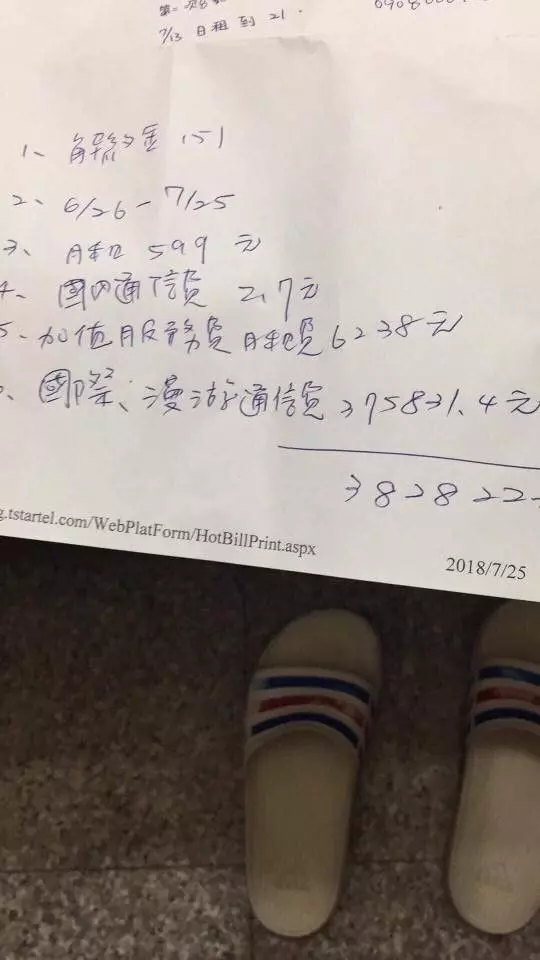 7/13 日租到 21.
1、解約金 151
2、6/26 - 7/25
3、月租 599 元
4、國內通信費 2.7元
5、加值服務費月租費 6238元
、國際、漫游通信費 375831.4元
382822
g.tstartel.com/WebPlatForm/HotBillPrint.aspx
2018/7/25